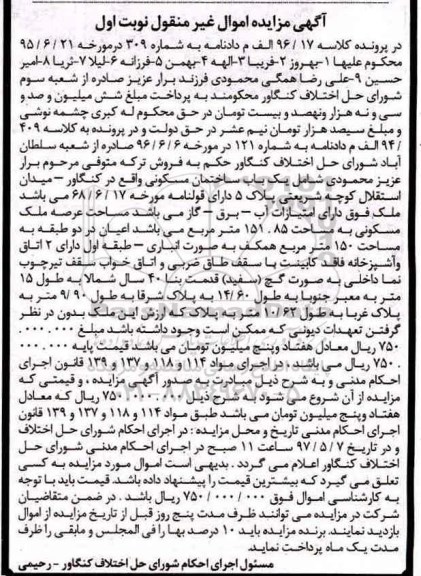 آگهی مزایده اموال غیر منقول نوبت اول
در پرونده کلاسه ۱۷ / ۹۶ الف م دادنامه به شماره ۳۰۹ درمورخه ۲۱ / ۶ / ۹۵
محکوم علیها ۱-بهروز ۲-فریبا ۳-الهه ۴-بهمن ۵-فرزانه ۶-لیلا ۷-ثریا ۸-امیر
حسین ۹-علی رضا همگی محمودی فرزند برار عزیز صادره از شعبه سوم
شورای حل اختلاف کنگاور محکومند به پرداخت مبلغ شش میلیون و صد و
سی و نه هزار ونهصد و بیست تومان در حق محکوم له کبری چشمه نوشی
و مبلغ سیصد هزار تومان نیم عشر در حق دولت و در پرونده به کلاسه ۴۰۹
/ ۹۴ الف م دادنامه به شماره ۱۲۱ در مورخه ۶ / ۶ / ۹۶ صادره از شعبه سلطان
آباد شورای حل اختلاف کنگاور حکم به فروش ترکه متوفی مرحوم برار
عزیز محمودی شامل یک باب ساختمان مسکونی واقع در کنگاور – میدان
استقلال کوچه شریعتی پلاک ۵ دارای قولنامه مورخه ۱۷ / ۶ / ۶۸ می باشد
ملک فوق دارای امتیازات آب – برق – گاز می باشد مساحت عرصه ملک
مسکونی به مساحت ۸۵ . ۱۵۱ متر مربع می باشد اعیان در دو طبقه به
مساحت ۱۵۰ متر مربع همکف به صورت انباری – طبقه اول دارای ۲ اتاق
وآشپزخانه فاقد کابینت با سقف طاق ضربی و اتاق خواب سقف تیرچوب
نما داخلی به صورت گچ (سفید) قدمت بنا ۴۰ سال شمالا به طول ۱۵
متر به معبر جنوبا به طول ۶۰ / ۱۴ به پلاک شرقا به طول ۹۰ / ۹ متر به
پلاک غربا به طول ۶۲ / ۱۰ متر به پلاک که ارزش این ملک بدون در نظر
گرفتن تعهدات دیونی که ممکن است وجود داشته باشد مبلغ ۰۰۰ . ۰۰۰ .
۷۵۰ ریال معادل هفتاد وپنج میلیون تومان می باشد قیمت پایه ۰۰۰ . ۰۰۰
. ۷۵۰ ریال می باشد ، در اجرای مواد ۱۱۴ و ۱۱۸ و ۱۳۷ و ۱۳۹ قانون اجرای
احکام مدنی و به شرح ذیل مبادرت به صدور آگهی مزایده ، و قیمتی که
مزایده از آن شروع می شود به شرح ذیل ۰۰۰ . ۰۰۰ . ۷۵۰ ریال که معادل
هفتاد وپنج میلیون تومان می باشد طبق مواد ۱۱۴ و ۱۱۸ و ۱۳۷ و ۱۳۹ قانون
اجرای احکام مدنی تاریخ و محل مزایده : در اجرای احکام شورای حل اختلاف
و در تاریخ ۷ / ۵ / ۹۷ ساعت ۱۱ صبح در اجرای احکام مدنی شورای حل
اختلاف کنگاور اعلام می گردد . بدیهی است اموال مورد مزایده به کسی
تعلق می گیرد که بیشترین قیمت را پیشنهاد داده باشد. قیمت باید با توجه
به کارشناسی اموال فوق ۰۰۰ / ۰۰۰ / ۷۵۰ ریال باشد . در ضمن متقاضیان
شرکت در مزایده می توانند ظرف مدت پنج روز قبل از تاریخ مزایده از اموال
بازدید نمایند. برنده مزایده باید ۱۰ درصد بها را فی المجلس و مابقی را ظرف
مدت یک ماه پرداخت نماید.
مسئول اجرای احکام شورای حل اختلاف کنگاور – رحیمی